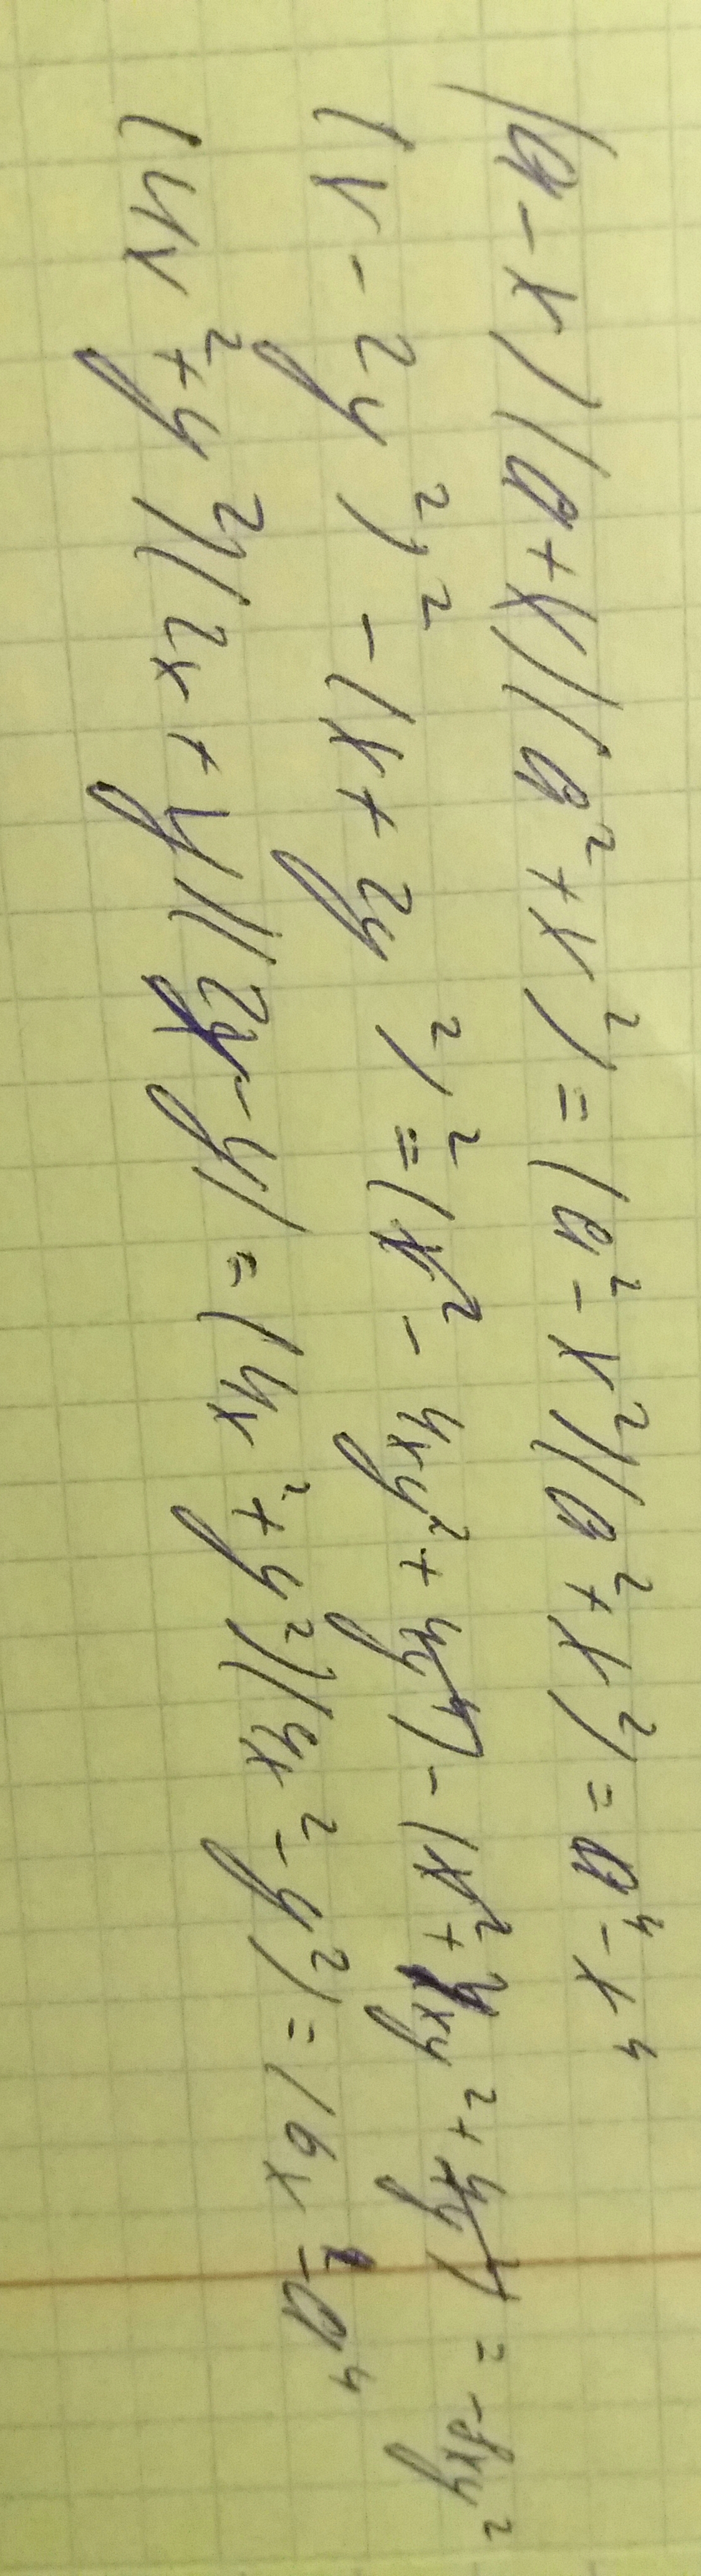 (a-x)(a+x)(a²+x²)=(a²-x²)(a²+x²)=a⁴-x⁴
(x-2y²)²-(x+2y²)²=(x²-4xy²+4y⁴)-(x²+4xy²+4y⁴)=-8xy²
(4x²+y²)(2x+y)(2x-y)=(4x²+y²)(4x²-y²)=16x²-a⁴